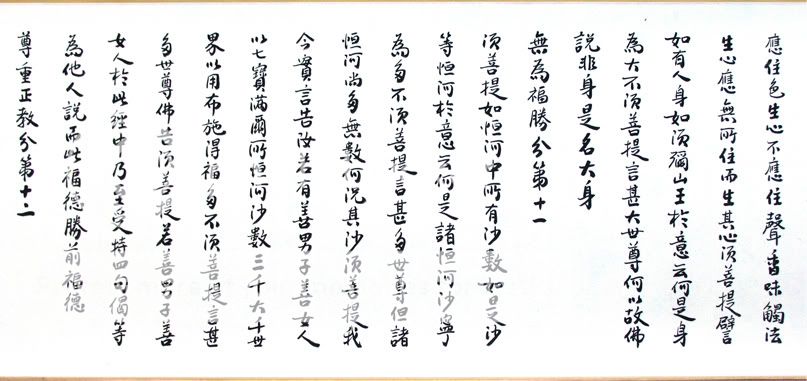 應住色生心不應住聲香味觸法
生心應無所住而生其心須菩提譬
如有人身如須彌山王於意云何是身
為大不須菩提言甚大世尊何以故佛
說非身是名大身
無為福勝分第十一
須菩提如恒河中所有沙數如是沙
等恒河於意云何是諸恒河沙寧
為多不須菩提言甚多世尊但諸
恒河尚多無數何況其沙須菩提我
今實言告汝若有善男子善女人
以七寶滿爾所恒河沙數三千大千世
界以用布施得福多不須菩提言甚
多世尊佛告須菩提若善男子善
女人於此經中乃至受持四句偈等
為他人說而此福德勝前福德
尊重正教分第十二